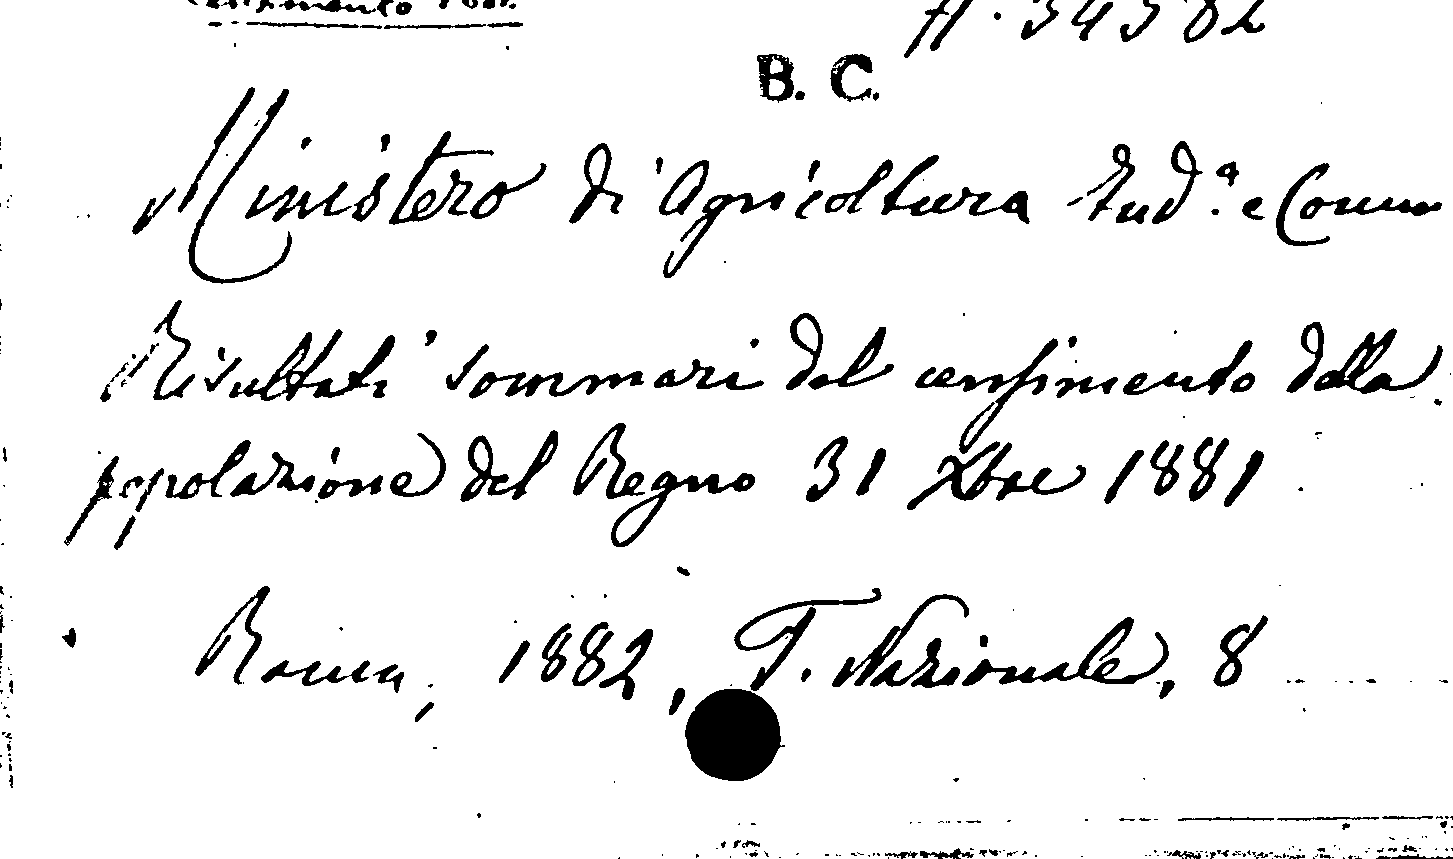 A. 34582
B. C.
Ministero di Agricoltura Ind.ª e Comm
Risultati sommari del censimento della
popolazione del Regno 31 Xbre 1881
Roma, 1882, T. Nazionale, 8